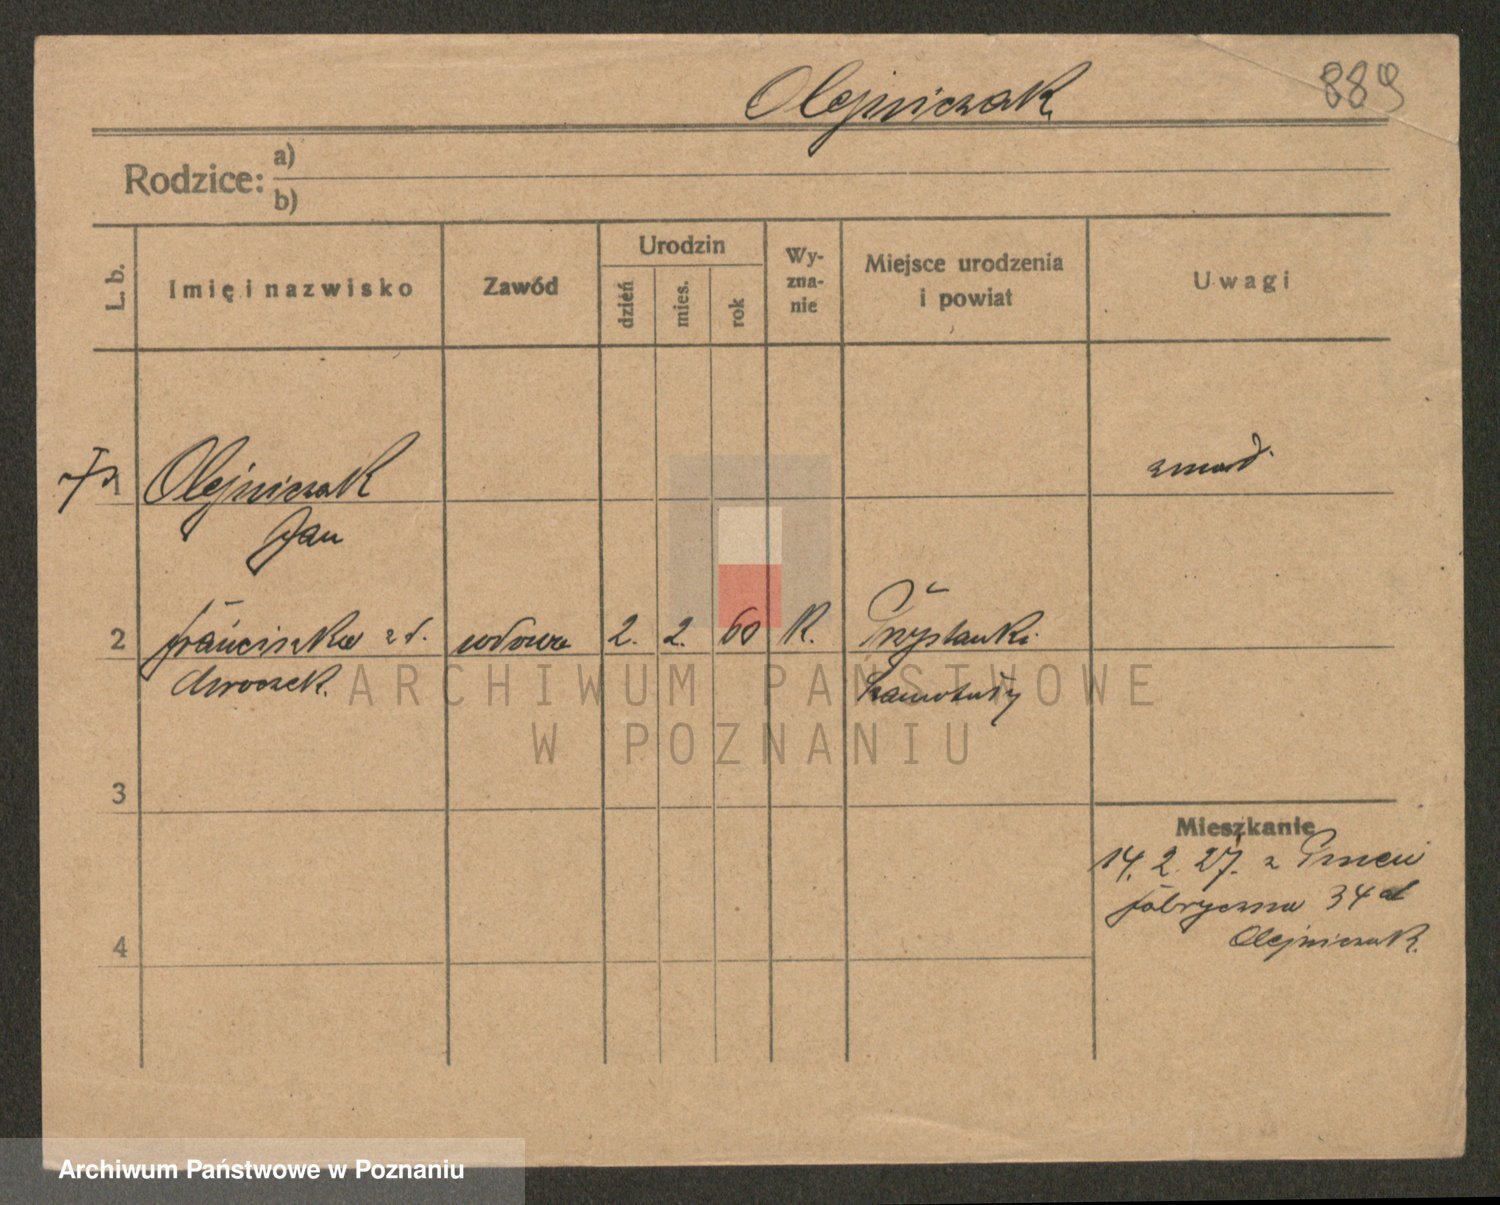 Olejniczak
889
Rodzice: a)
b)
L. b.
Imię i nazwisko
Zawód
Urodzin
dzień
mies.
rok
Wy-
zna-
nie
Miejsce urodzenia
i powiat
Uwagi
1 Olejniczak zmarł.
Jan
2 Franciszka z d. wdowa 2. 2. 60 K. Przystanki
Mroczek. Szamotuły
3
Mieszkanie
14. 2. 27. z Pniew
fabryczna 34
Olejniczak.
4
ARCHIWUM PAŃSTWOWE
W POZNANIU
Archiwum Państwowe w Poznaniu